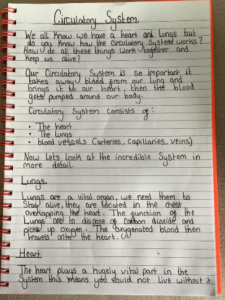 Circulatory System
We all know we have a heart and lungs but
do you know how the circulatory system works?
How do all these things work together and
keep us alive?
Our Circulatory System is so important it
takes away blood from our lung and
brings it to our heart, then the blood
gets pumped around our body.
Circulatory System consists of:
• The heart
• The lungs
• blood vessels (arteries, capillaries, veins)
Now lets look at the incredible System in
more detail.
Lungs
Lungs are a vital organ, we need them to
stay alive, they are located in the chest
overlapping the heart. The function of the
Lungs are to dispose of carbon dioxide and
pick up oxygen. The oxygenated blood then
travels onto the heart.
Heart
The heart plays a hugely vital part in the
System this means you should not live without it.